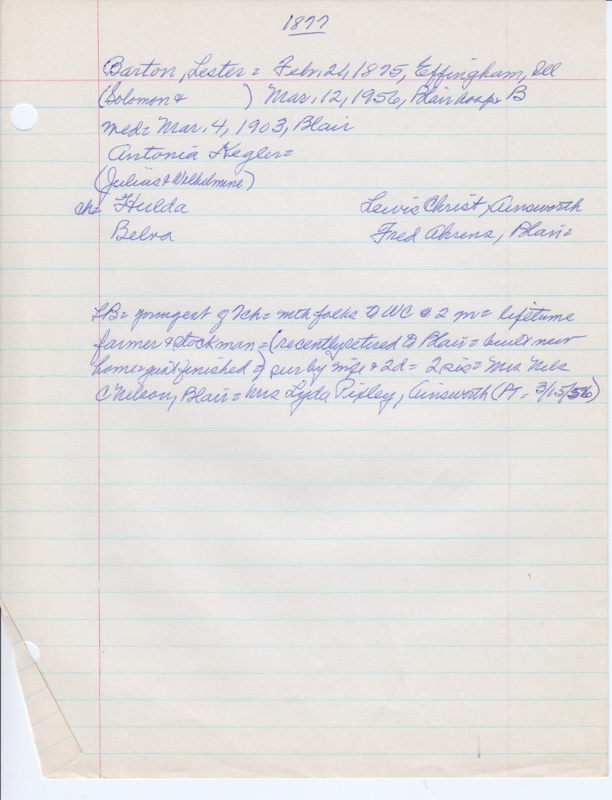 1877
Barton, Lester = Feb. 21, 1875, Effingham, Ill
(Solomon & ) Mar. 12, 1956, Blair hosp = B
med = Mar. 4, 1903, Blair
Antonia Kegler =
(Julius & Wilhelmine)
ch = Hulda Lewis Christ, Ainsworth
Belva Fred Ahrens, Blair =
LB = youngest of 7 ch = mth folks to WC @ 2 m = lifetime
farmer & stockman = (recently retired to Blair = built new
home = just finished =) sur by wife & 2d = 2 sis = Mrs Nels
C Nelson, Blair = Mrs Lyda Pixley, Ainsworth (PT - 3/15/56)